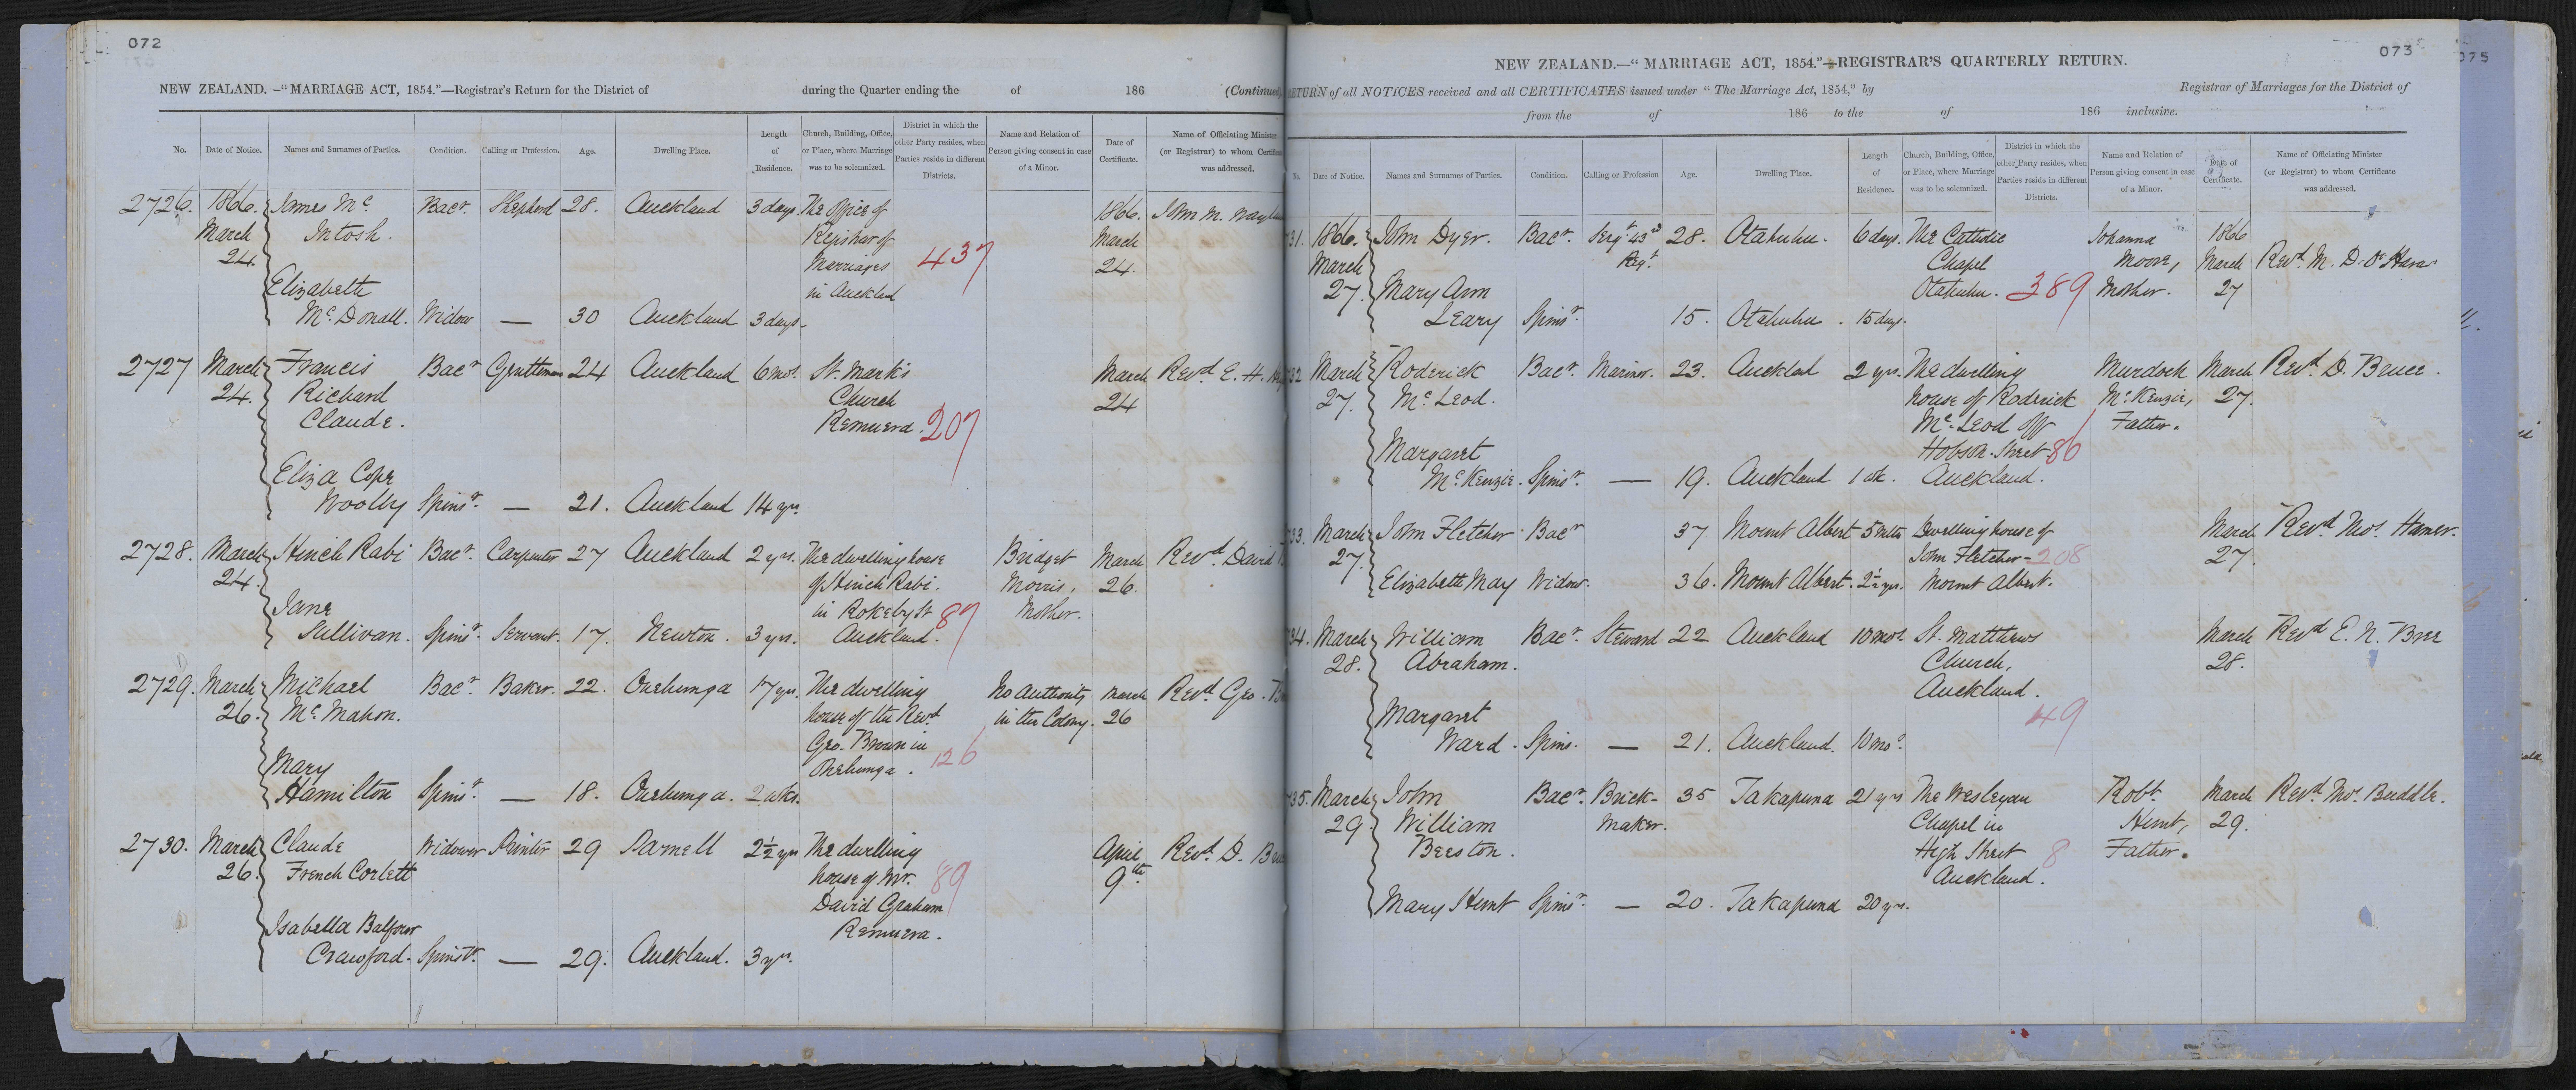 072
NEW ZEALAND. —"MARRIAGE ACT, 1854."—Registrar's Return for the District of during the Quarter ending the of 186 (Continued
No. Date of Notice. Names and Surnames of Parties. Condition. Calling or Profession. Age. Dwelling Place. Length of Residence. Church, Building, Office, or Place, where Marriage was to be solemnized. District in which the other Party resides, when Parties reside in different Districts. Name and Relation of Person giving consent in case of a Minor. Date of Certificate. Name of Officiating Minister (or Registrar) to whom Certificate was addressed.
2726. 1866. James Mc. Bacr. Shepherd 28. Auckland 3 days. The Office of 1866. John M.
March Intosh. Registrar of March
24. Marriages 437 24.
Elizabeth in Auckland
Mc. Donall. Widow — 30 Auckland 3 days.
2727 March Francis Bacr Gentleman 24 Auckland 6 mos. St. Mark's March Revd. E. H.
24. Richard Church 24
Claude. Remuera. 207
Eliza Cope
Woolly Spinsr. — 21. Auckland 14 yrs.
2728. March Hinch Rabi Bacr. Carpenter 27 Auckland 2 yrs. The dwelling house Bridget March Revd. David
24. of Hinch Rabi. Morris, 26.
Jane in Rokeby St 87 Mother.
Sullivan. Spinsr. Servant. 17. Newton. 3 yrs. Auckland.
2729. March Michael Bacr. Baker. 22. Onehunga 17 yrs. The dwelling No Authority March Revd. Geo.
26. Mc. Mahon. house of the Revd. in the Colony. 26
Geo. Brown in 126
Mary Onehunga.
Hamilton Spinsr. — 18. Onehunga. 2 wks.
2730. March Claude Widower Printer 29 Parnell 2½ yrs The dwelling April Revd. D.
26. French Corlett house of Mr. 89 9th.
David Graham
Isabella Balfour Remuera.
Crawford. Spinstr. — 29. Auckland. 3 yrs.
073
075
NEW ZEALAND.—"MARRIAGE ACT, 1854."—REGISTRAR'S QUARTERLY RETURN.
RETURN of all NOTICES received and all CERTIFICATES issued under "The Marriage Act, 1854," by Registrar of Marriages for the District of
from the of 186 to the of 186 inclusive.
No. Date of Notice. Names and Surnames of Parties. Condition. Calling or Profession Age. Dwelling Place. Length of Residence. Church, Building, Office or Place, where Marriage was to be solemnized. District in which the other Party resides, when Parties reside in different Districts. Name and Relation of Person giving consent in case of a Minor. Date of Certificate. Name of Officiating Minister (or Registrar) to whom Certificate was addressed.
31. 1866. John Dyer. Bacr. Sergt. 43d 28. Otahuhu. 6 days. The Catholic Johanna 1866
March Regt. Chapel Moore, March Revd. M. D. O'Hara.
27. Mary Ann Otahuhu. 389 Mother. 27
Leary Spinsr. 15. Otahuhu. 15 days.
32 March Roderick Bacr. Mariner. 23. Auckland 2 yrs. The dwelling Murdoch March Revd. D. Bruce.
27. Mc. Leod. house of Roderick Mc. Kenzie, 27.
Mc. Leod off Father.
Margaret Hobson Street 86
Mc. Kenzie. Spinsr. — 19. Auckland 1 wk. Auckland.
33. March John Fletcher Bacr 37 Mount Albert 5 mths Dwelling house of March Revd. Thos. Hamer.
27. John Fletcher 208 27.
Elizabeth May Widow. 36. Mount Albert. 2½ yrs. Mount Albert.
34. March William Bacr. Steward 22 Auckland 10 mos. St. Matthews March Revd E. N. Bree
28. Abraham. Church, 28.
Auckland.
Margaret 49
Ward. Spins. — 21. Auckland. 10 mos.
35. March John Bacr. Brick- 35 Takapuna 21 yrs The Wesleyan Robt. March Revd. Thos. Buddle.
29. William maker. Chapel in Hunt, 29.
Beeston. High Street 8 Father.
Auckland.
Mary Hunt Spinsr. — 20. Takapuna 20 yrs.